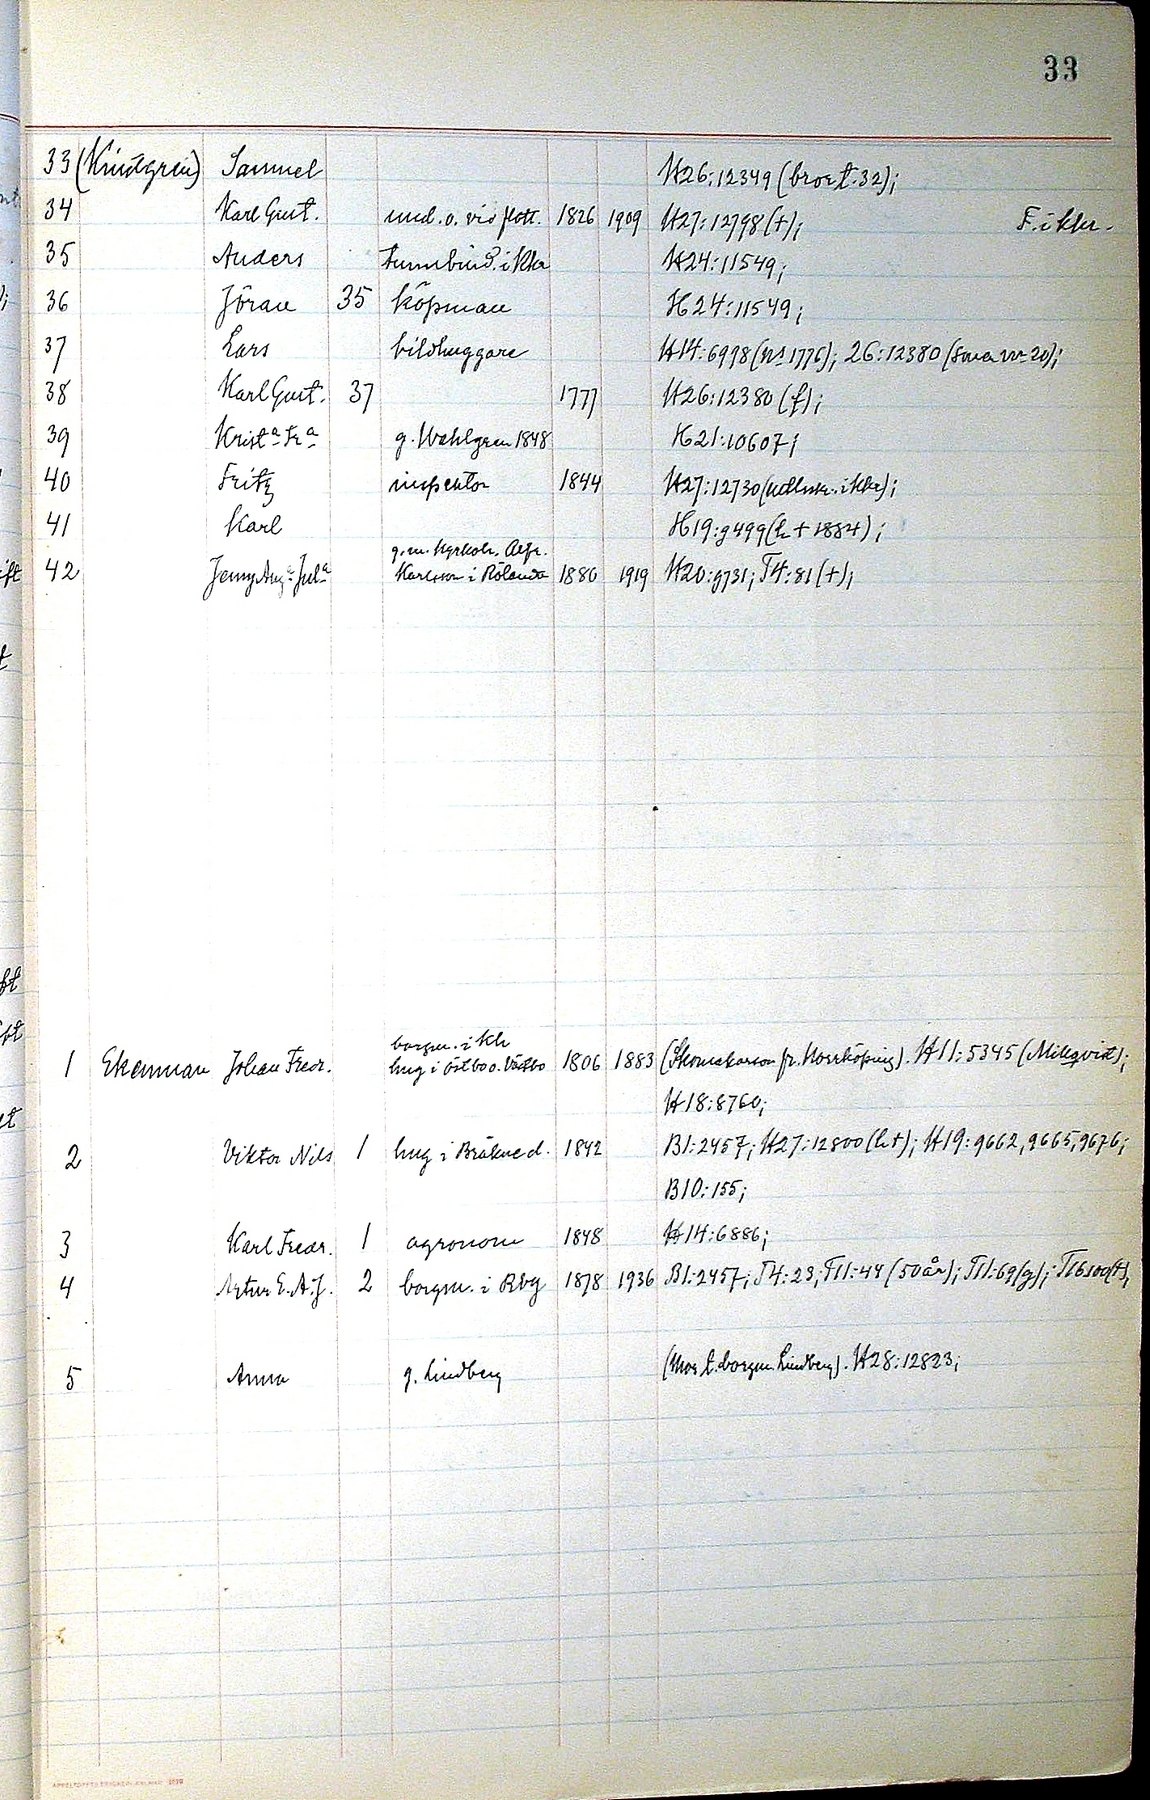 33
33 (Kindgren) Samuel H26:12349 (bror t. 32);
34 Karl Gust. und. o. vid flott. 1826 1909 H27:12798 (†); F. i khr.
35 Anders tunnbind. i Khr H24:11549;
36 Jöran 35 köpman H24:11549;
37 Lars bildhuggare H14:6998 (nr 1776); 26:12380 (sma nr 20);
38 Karl Gust. 37 1777 H26:12380 (f);
39 Krist:a Fr:a g. Wahlgren 1848 H21:10607;
40 Fritz inspektor 1844 H27:12730
41 Karl H19:9499 (h † 1884);
g. m. kyrkoh. Alfr.
42 Jenny Aug:a Jul:a Karlsson i Rölanda 1886 1919 H20:9731; T4:81 (†);
borgm. i Kh
1 Ekenman Johan Fredr. hug i Östbo o. Västbo 1806 1883 fr. Norrköping). H11:5345 (Millqvist);
H18:8760;
2 Viktor Nils 1 hug i Bräkne d. 1842 B1:2457; H27:12800 (h†); H19:9662, 9665, 9676;
B10:155;
3 Karl Fredr. 1 agronom 1848 H14:6886;
4 Artur E. A. J. 2 borgm. i Rbg 1878 1936 B1:2457; T4:23; T11:44 (50 år); T11:69 (g); T16:100 (†);
5 Anna g. Lindberg (Mor t. borgm. Lindberg). H28:12823;